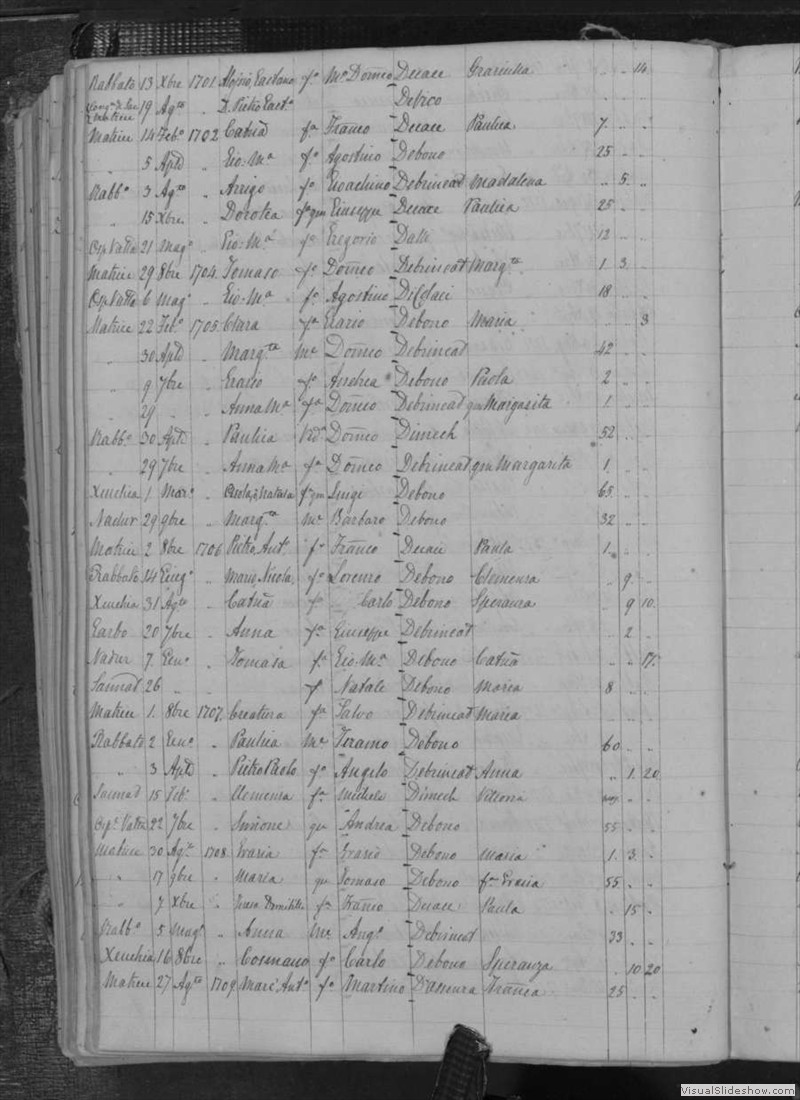 Rabbato 13 Xbre 1701 Aloisio Caetano fo Mo Domco Decace Graziulla " 14
19 Agto " D. Pietro Caeto Delrco
Matrice 14 Febo 1702 Catna fa Franco Decace Paulica 7 " "
" 5 Aple " Gio: Ma fo Agostino Debono 25 " "
Rabbo 3 Agto " Arrigo fo Gioachino Debrincat Madalena " 5 "
" 15 Xbre " Dorotea fa qm Giuseppe Decace Paulica 25 "
Osp Vatta 21 Mago " Gio: Ma fo Gregorio Dalli 12 "
Matrice 29 8bre 1704 Tomaso fo Domco Debrincat Margta 1 3
Osp Vatta 6 Mago " Gio: Ma fo Agostino 18 "
Matrice 22 Febo 1705 Clara fa Grazio Debono Maria " " 3
" 30 Aple " Margta Me Domco Debrincat 42
" 9 7bre " Grazio fo Andrea Debono Paola 2 "
" 29 " " Anna Ma fa Domco Debrincat qm Margarita 1 "
Rabbo 30 Aple " Paulica Vda Domco Dimech 52 "
" 29 7bre " Anna Ma fa Domco Debrincat qm Margarita 1 "
Xeuchia 1 Maro " fa qm Luigi Debono 65 "
Nadur 29 9bre " Margta Me Barbaro Debono 32 "
Matrice 2 8bre 1706 Pietro Anto fo Franco Decace Paula 1 "
Rabbato 14 Geng " Maria Nicola fa Lorenzo Debono Clemenza " 9
Xeuchia 31 Agto " Catna fa Carlo Debono Speranza " 9 10
Garbo 20 7bre " Anna fa Giuseppe Debrincat " 2 "
Nadur 7 Geno " Tomasa fa Gio: Ma Debono Catna " " 17
Sannat 26 " " fo Natale Debono Maria 8
Matrice 1 8bre 1707 Creatura fa Salvo Debrincat Maria " "
Rabbato 2 Geno " Paulica Me Teramo Debono 60 "
" 3 Aple " Pietro Paolo fo Angelo Debrincat Anna " 1 20
Sannat 15 Febo " Clemenza fa Michele Dimech Vittoria
Ospl Vatta 22 7bre " Simone qm Andrea Debono 55 " "
Matrice 30 Agto 1708 Grazia fa Grazio Debono Maria 1 3 "
" 17 9bre " Maria qm Tomaso Debono fa Grazia 55 " "
" 7 Xbre " fa Franco Decace Paula " 15 "
Rabbo 5 Mago " Anna Me Ango Debrincat 33 " "
Xeuchia 16 8bre " Cosmano fo Carlo Debono Speranza " 10 20
Matrice 27 Agto 1709 Mare Anto fo Martino Dasmura Franca 25 " "
VisualSlideshow.com